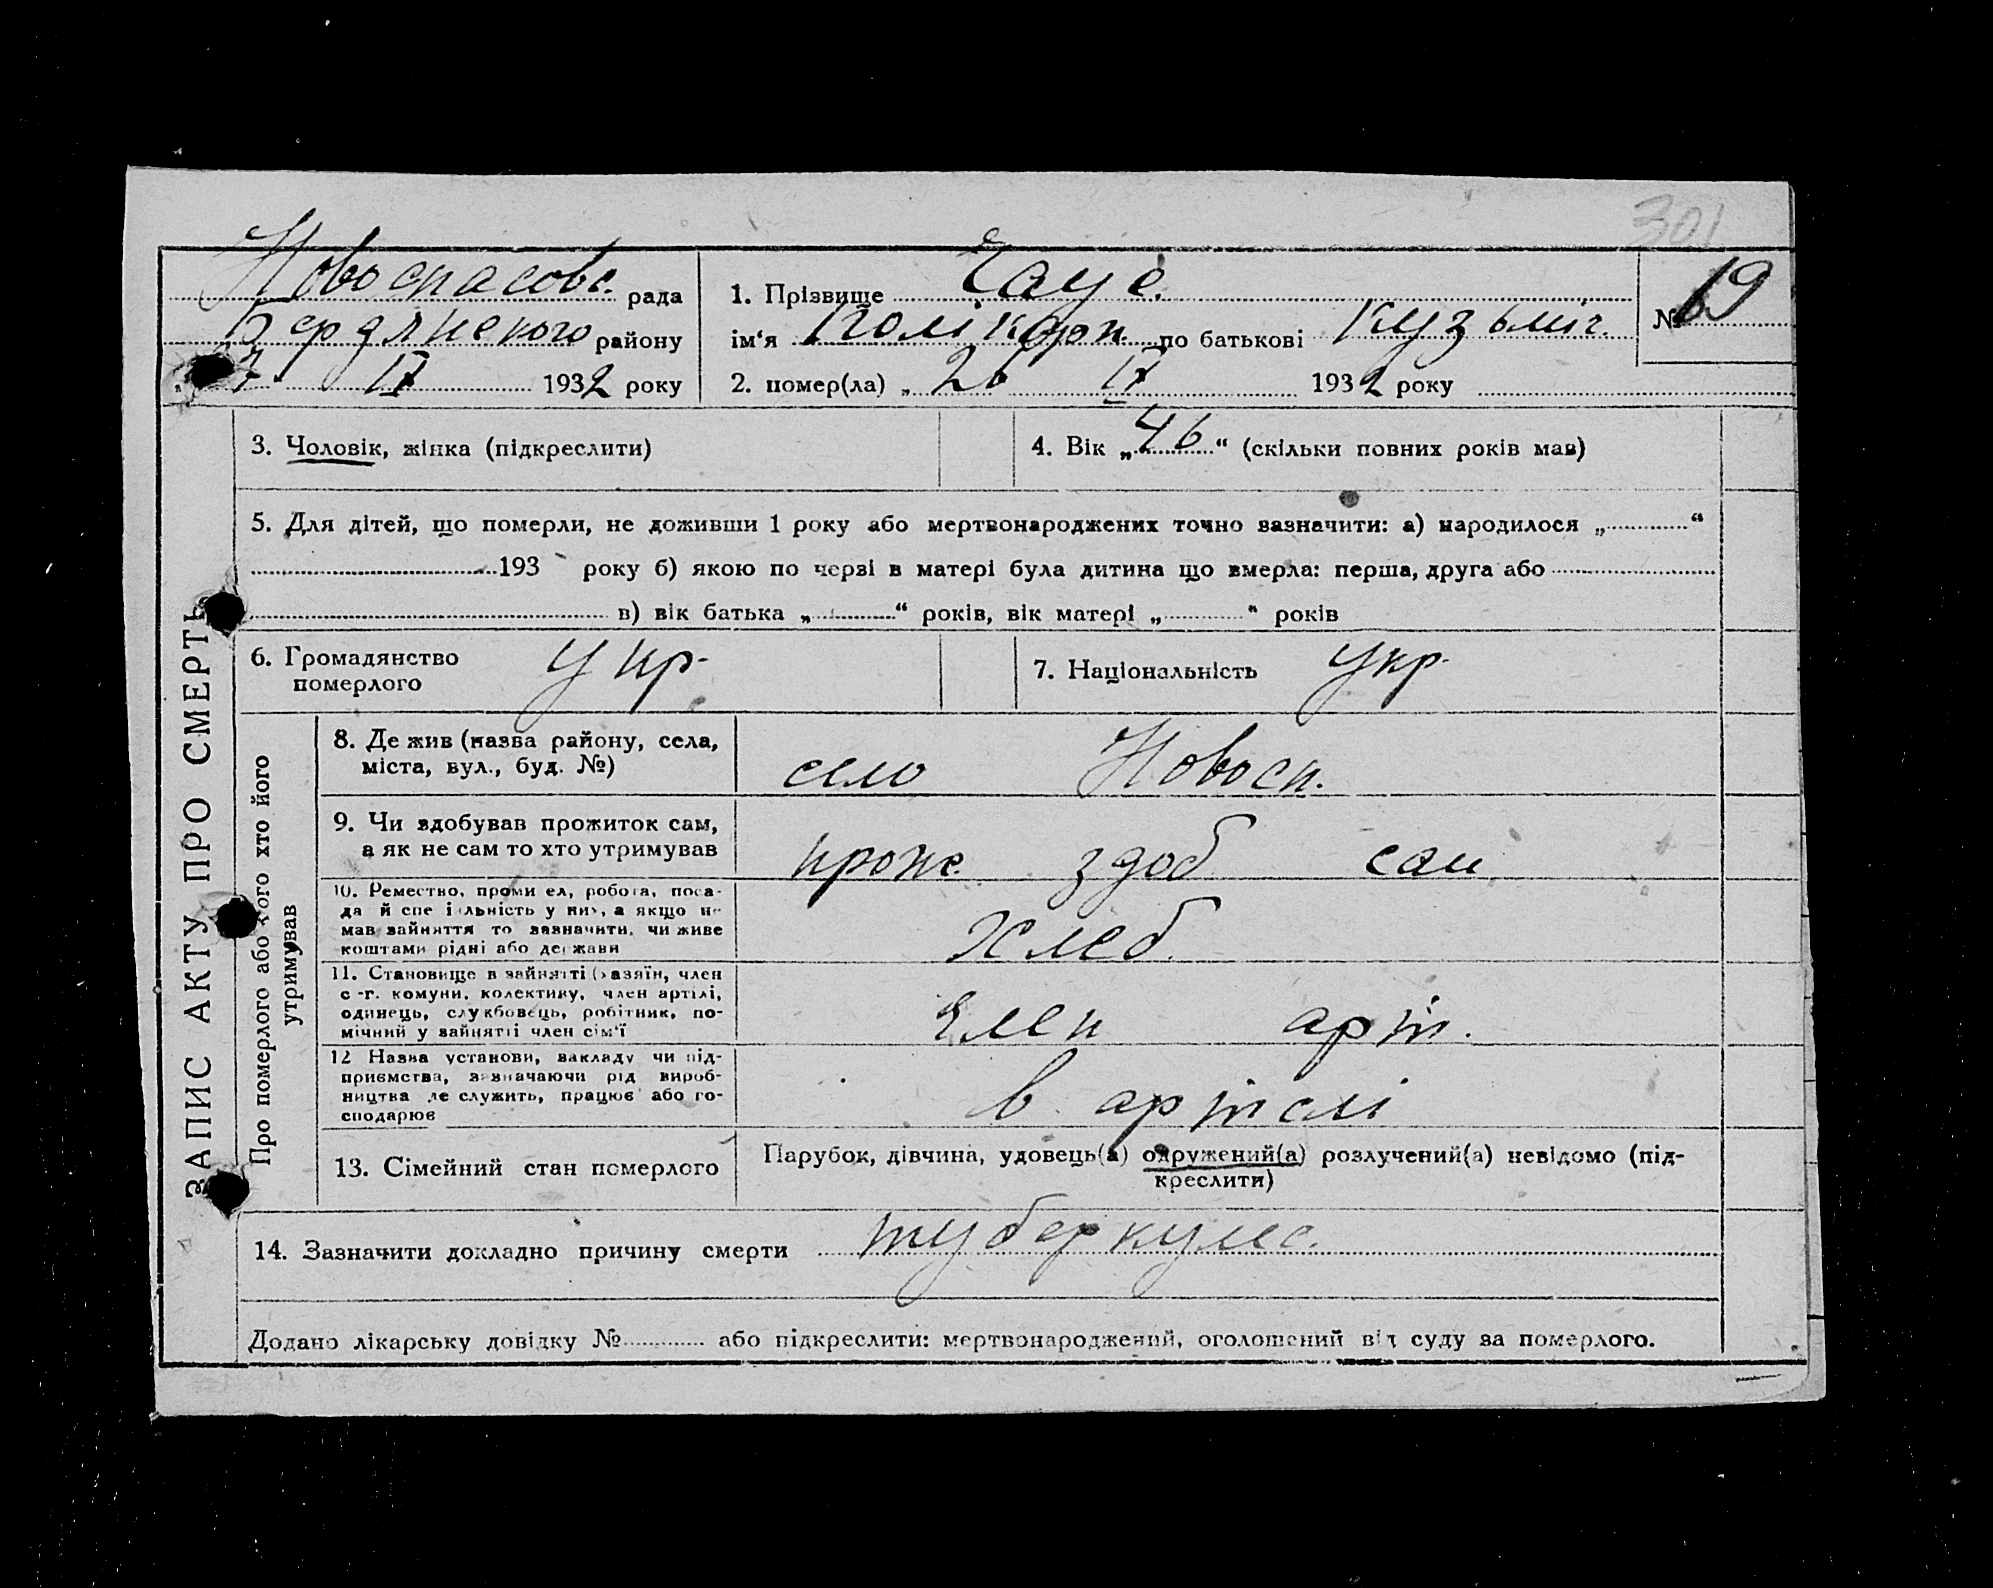 301
Новоспасовс. рада
Бердянского району
7 IX 1932 року
1. Прізвище
№ 19
ім'я Полікарп. по батькові Кузьміч.
2. помер(ла) „ 26 1932 року
ЗАПИС АКТУ ПРО СМЕРТЬ
3. Чоловік, жінка (підкреслити)
4. Вік „46“ (скільки повних років мав)
5. Для дітей, що померли, не доживши 1 року або мертвонароджених точно зазначити: а) народилося „ “
193 року б) якою по черзі в матері була дитина що вмерла: перша, друга або
в) вік батька „ “ років, вік матері „ “ років
6. Громадянство
померлого
Укр.
7. Національність Укр.
Про померлого або кого хто його
утримував
8. Де жив (назва району, села,
міста, вул., буд. №)
село Новосп.
9. Чи здобував прожиток сам,
а як не сам то хто утримував
прож. здоб сам
10. Ремество, промисел, робота, поса-
да й спеціальність у них, а якщо не
мав зайняття то зазначити, чи живе
коштами рідні або держави
Хлеб.
11. Становище в зайнятті (хазяїн, член
с.-г. комуни, колективу, член артілі,
одинець, службовець, робітник, по-
мічний у зайнятті член сім'ї
Член арт.
12 Назва установи, закладу чи під-
приємства, зазначаючи рід вироб-
ництва де служить, працює або го-
сподарює
в артелі
13. Сімейний стан померлого
Парубок, дівчина, удовець(а) одружений(а) розлучений(а) невідомо (під-
креслити)
14. Зазначити докладно причину смерти туберкулес.
Додано лікарську довідку № або підкреслити: мертвонароджений, оголошений від суду за померлого.